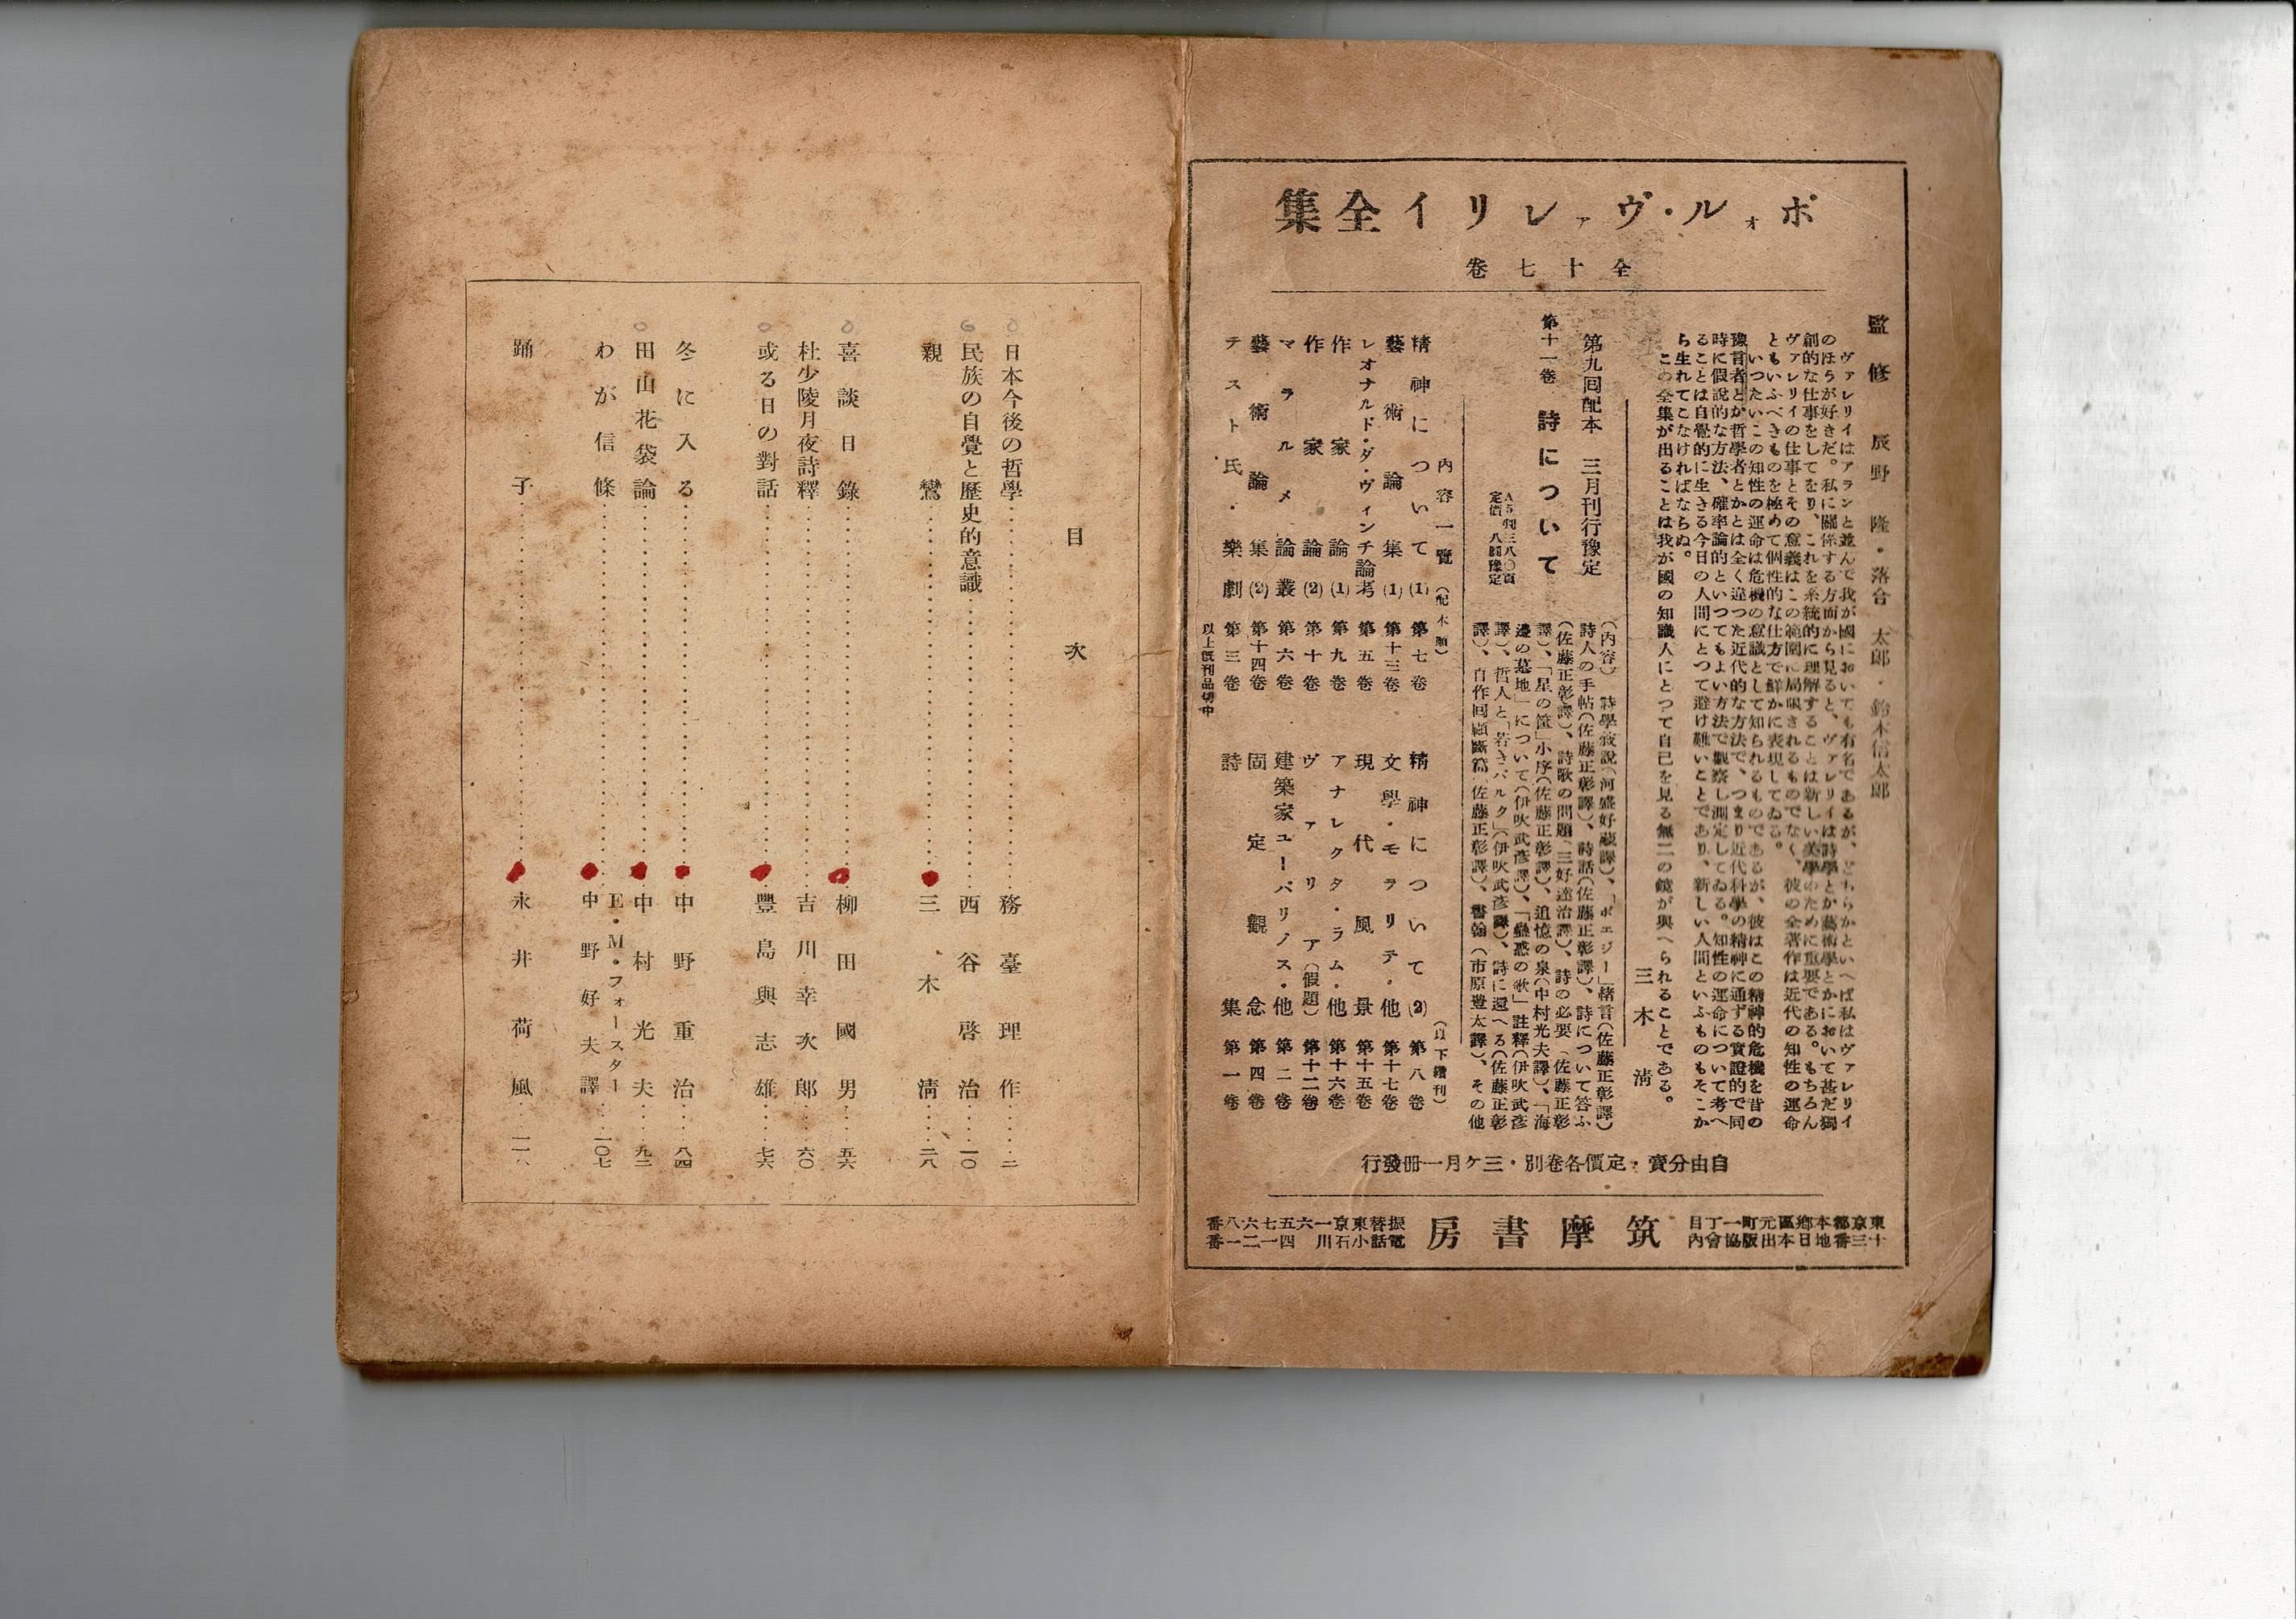 ポオル・ヴァレリイ全集
全十七卷
監修 辰野隆・落合太郎・鈴木信太郎
ヴァレリイはアランと並んで我が國においても有名であるが、どちらかといへば私はヴァレリイ
のほうが好きだ。私に關係する方面から見ると、ヴァレリイは詩學とか藝術學とかにおいて甚だ獨
創的な仕事をしてをり、これを系統的に理解することは新しい美學のために重要である。もちろん
ヴァレリイの仕事とその意義はこの範圍に局限されるものでなく、彼の全著作は近代の知性の運命
ともいふべきものを極めて個性的な仕方で鮮かに表現してゐる。
いつたいこの知性の運命は危機の意識として知られるものであるが、彼はこの精神的危機を昔の
豫言者とか哲學者とかとは全く違つた近代的な方法で、つまり近代科學の精神に通ずる實證的で同
時に假說的な方法、確率論的といつてもよい方法で觀察し測定してゐる。知性の運命について考へ
ることは自覺的に生きる今日の人間にとつて避け難いことであり、新しい人間といふものもそこか
ら生れてこなければならぬ。
この全集が出ることは我が國の知識人にとつて自己を見る無二の鏡が與へられることである。
三木淸
第九回配本 三月刊行豫定
第十一卷 詩について
A5判三八〇頁
定價 八圓豫定
(内容) 詩學敍說(河盛好藏譯)、「ポエジー」緖言(佐藤正彰譯)
詩人の手帖(佐藤正彰譯)、詩話(佐藤正彰譯)、詩について答ふ
(佐藤正彰譯)、詩歌の問題(三好達治譯)、詩の必要(佐藤正彰
譯)、「星の筐」小序(佐藤正彰譯)、追憶の泉(中村光夫譯)、「海
邊の墓地」について(伊吹武彦譯)、「蠱惑の歌」註釋(伊吹武彦
譯)、哲人と「若きパルク」(伊吹武彦譯)、詩に還へる(佐藤正彰
譯)、自作回顧斷篇(佐藤正彰譯)、書翰(市原豊太譯)、その他
内容一覽(配本順)
精神について(1) 第七卷
藝術論集(1) 第十三卷
レオナルド・ダ・ヴィンチ論考 第五卷
作家論(1) 第九卷
作家論(2) 第十卷
マラルメ論叢 第六卷
藝術論集(2) 第十四卷
テスト氏・樂劇 第三卷
以上既刊品切中
(以下續刊)
精神について(2) 第八卷
文學・モラリテ・他 第十七卷
現代風景 第十五卷
アナレクタ・ラム・他 第十六卷
ヴァリア(假題) 第十二卷
建築家ユーパリノス・他 第二卷
固定觀念 第四卷
詩集 第一卷
自由分賣・定價各卷別・三ケ月一冊發行
東京都本鄕區元町一丁目
十三番地日本出版協會内
筑摩書房
振替東京一六五七六八番
電話小石川四一二一番
目次
日本今後の哲學……務臺理作……二
民族の自覺と歷史的意識……西谷啓治……一〇
親鸞……三木淸……二八
喜談日錄……柳田國男……五六
杜少陵月夜詩釋……吉川幸次郎……六〇
或る日の對話……豐島與志雄……七六
冬に入る……中野重治……八四
田山花袋論……中村光夫……九二
わが信條……E・M・フォースター
中野好夫譯……一〇七
踊子……永井荷風